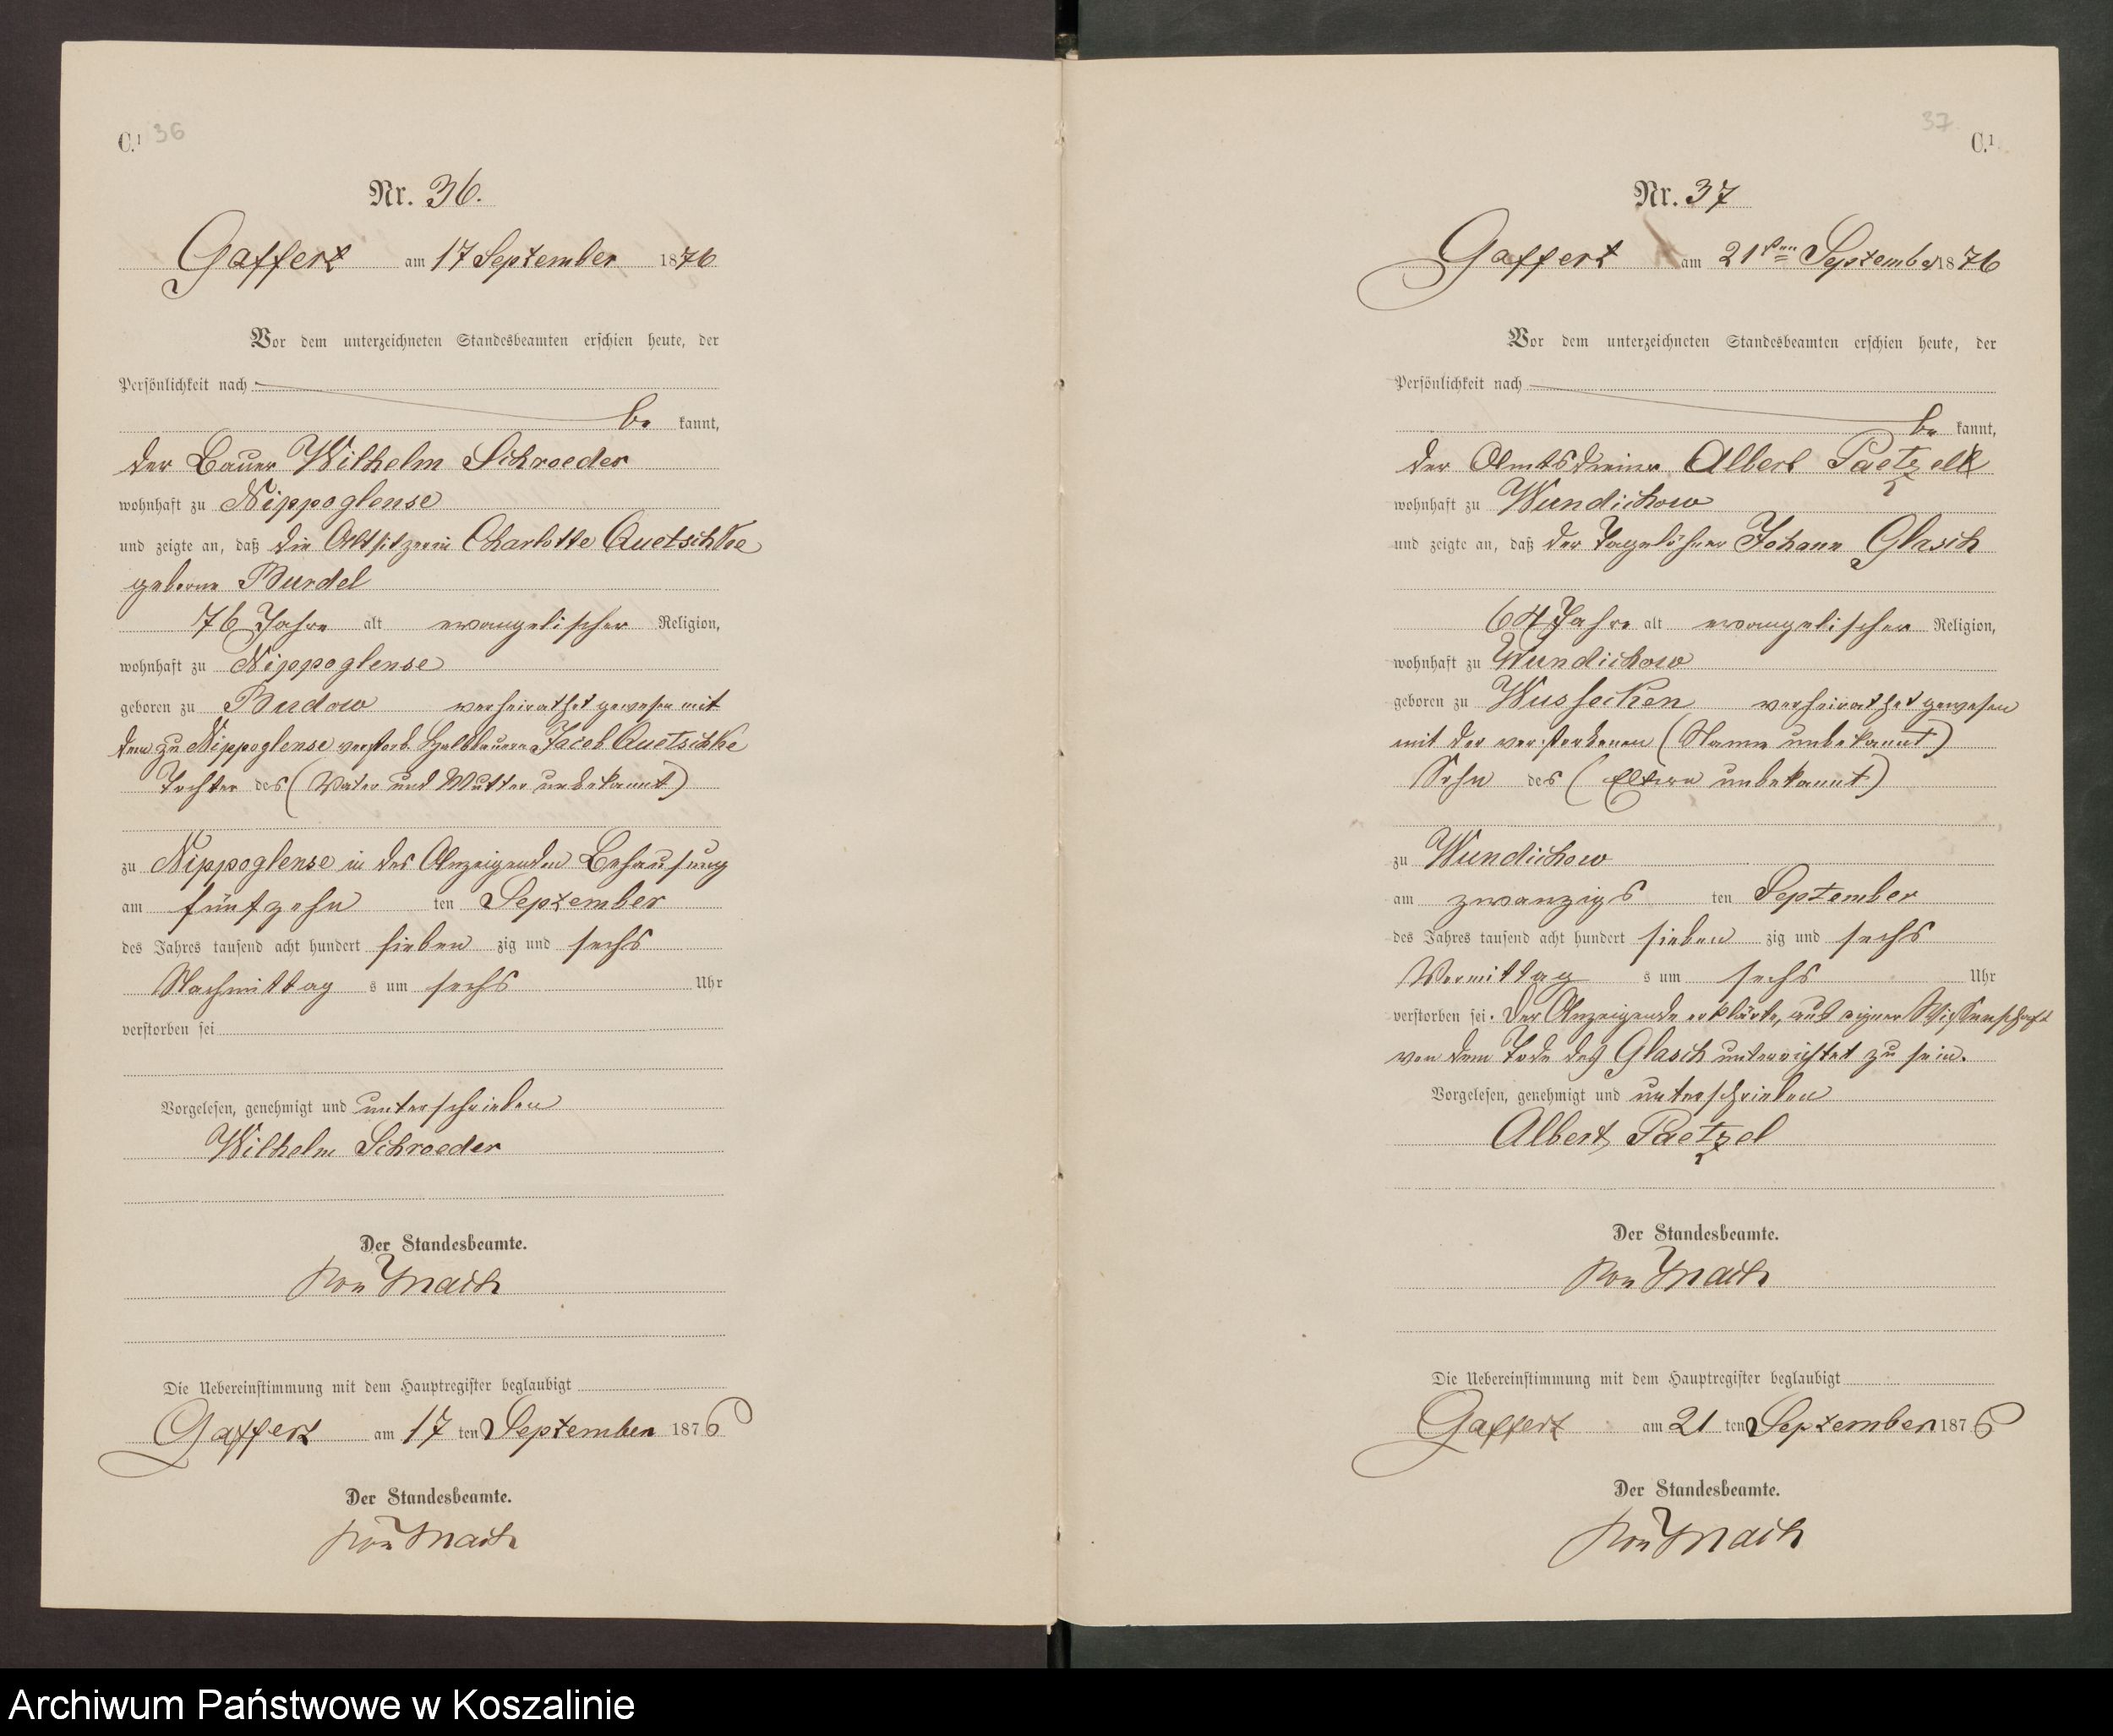 C.¹ 36
Nr. 36.
Gaffert am 17 September 1876
Vor dem unterzeichneten Standesbeamten erschien heute, der
Persönlichkeit nach
be kannt,
der Bauer Wilhelm Schroeder
wohnhaft zu Nippoglense
und zeigte an, daß die Altsitzerin Charlotte Quetschke
geborne Burdel
76 Jahre alt evangelischer Religion,
wohnhaft zu Nippoglense
geboren zu Budow verheirathet gewesen mit
dem zu Nippoglense verstorb. Halbbauern Jacob Quetschke
Tochter des (Vater und Mutter unbekannt)
zu Nippoglense in des Anzeigenden Behausung
am fünfzehn ten September
des Jahres tausend acht hundert sieben zig und sechs
Nachmittag s um sechs Uhr
verstorben sei
Vorgelesen, genehmigt und unterschrieben
Wilhelm Schroeder
Der Standesbeamte.
von Mach
Die Uebereinstimmung mit dem Hauptregister beglaubigt
Gaffert am 17 ten September 1876
Der Standesbeamte.
von Mach
37 C.¹
Nr. 37
Gaffert am 21ten September 1876
Vor dem unterzeichneten Standesbeamten erschien heute, der
Persönlichkeit nach
be kannt,
der Amtsdiener Albert Paetzel
wohnhaft zu Wundichow
und zeigte an, daß der Tagelöhner Johann Glasch
64 Jahre alt evangelischer Religion,
wohnhaft zu Wundichow
geboren zu Wussecken verheirathet gewesen
mit der verstorbenen (Name unbekannt)
Sohn des (Eltern unbekannt)
zu Wundichow
am zwanzigs ten September
des Jahres tausend acht hundert sieben zig und sechs
Vormittag s um sechs Uhr
verstorben sei. Der Anzeigende erklärte, aus eigner Wissenschaft
von dem Tode des Glasch unterrichtet zu sein.
Vorgelesen, genehmigt und unterschrieben
Albert Paetzel
Der Standesbeamte.
von Mach
Die Uebereinstimmung mit dem Hauptregister beglaubigt
Gaffert am 21 ten September 1876
Der Standesbeamte.
von Mach
Archiwum Państwowe w Koszalinie